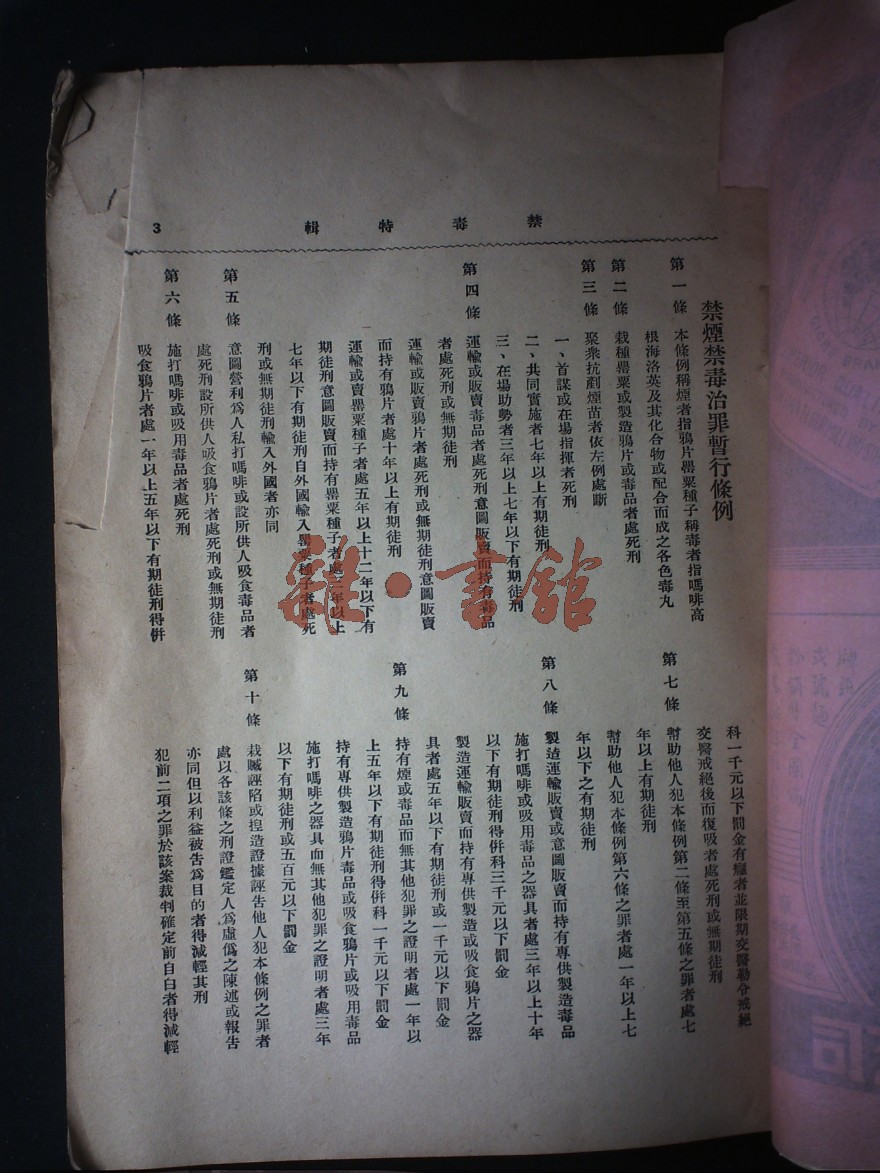 禁毒特輯
3
禁煙禁毒治罪暫行條例
第一條 本條例稱煙者指鴉片罌粟種子稱毒者指嗎啡高
根海洛英及其化合物或配合而成之各色毒丸
第二條 栽種罌粟或製造鴉片或毒品者處死刑
第三條 聚衆抗剷煙苗者依左例處斷
一、首謀或在場指揮者死刑
二、共同實施者七年以上有期徒刑
三、在場助勢者三年以上七年以下有期徒刑
第四條 運輸或販賣毒品者處死刑意圖販賣而持有毒品
者處死刑或無期徒刑
運輸或販賣鴉片者處死刑或無期徒刑意圖販賣
而持有鴉片者處十年以上有期徒刑
運輸或賣罌粟種子者處五年以上十二年以下有
期徒刑意圖販賣而持有罌粟種子者處三年以上
七年以下有期徒刑自外國輸入罌粟種子者處死
刑或無期徒刑輸入外國者亦同
第五條 意圖營利爲人私打嗎啡或設所供人吸食毒品者
處死刑設所供人吸食鴉片者處死刑或無期徒刑
第六條 施打嗎啡或吸用毒品者處死刑
吸食鴉片者處一年以上五年以下有期徒刑得併
科一千元以下罰金有癮者並限期交醫勒令戒絕
交醫戒絕後而復吸者處死刑或無期徒刑
第七條 幫助他人犯本條例第二條至第五條之罪者處七
年以上有期徒刑
幫助他人犯本條例第六條之罪者處一年以上七
年以下之有期徒刑
第八條 製造運輸販賣或意圖販賣而持有專供製造毒品
施打嗎啡或吸用毒品之器具者處三年以上十年
以下有期徒刑得併科三千元以下罰金
製造運輸販賣而持有專供製造或吸食鴉片之器
具者處五年以下有期徒刑或一千元以下罰金
第九條 持有煙或毒品而無其他犯罪之證明者處一年以
上五年以下有期徒刑得併科一千元以下罰金
持有專供製造鴉片毒品或吸食鴉片或吸用毒品
施打嗎啡之器具而無其他犯罪之證明者處三年
以下有期徒刑或五百元以下罰金
第十條 栽贓誣陷或揑造證據誣告他人犯本條例之罪者
處以各該條之刑證鑑定人爲虛僞之陳述或報告
亦同但以利益被告爲目的者得減輕其刑
犯前二項之罪於該案裁判確定前自白者得減輕
雜·書館